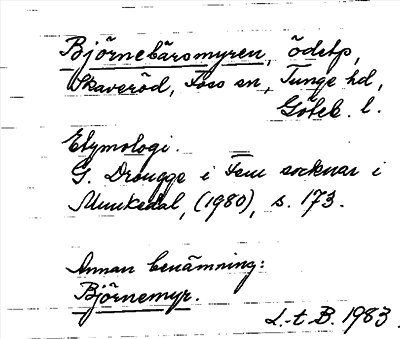 Björnebärsmyren, ödetp,
Skaveröd, Foss sn, Tunge hd,
Göteb. l.
Etymologi.
G. Drougge i Fem socknar i
Munkedal, (1980), s. 173.
Annan benämning:
Björnemyr.
L-t B. 1983.